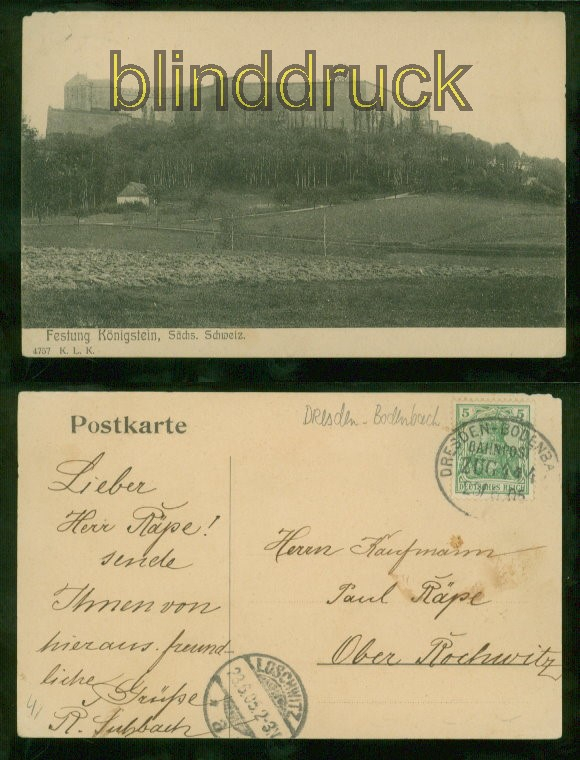 blinddruck
Festung Königstein, Sächs. Schweiz.
4757 K. L. K.
Dresden-Bodenbach
Postkarte
5 5
DEUTSCHES REICH
DRESDEN-BODENBA
BAHNPOST
ZUG 444
Lieber
Herr Räpe!
sende
Ihnen von
hieraus freund-
liche Grüße
Herrn Kaufmann
Paul Räpe
Ober Rochwitz
LOSCHWITZ